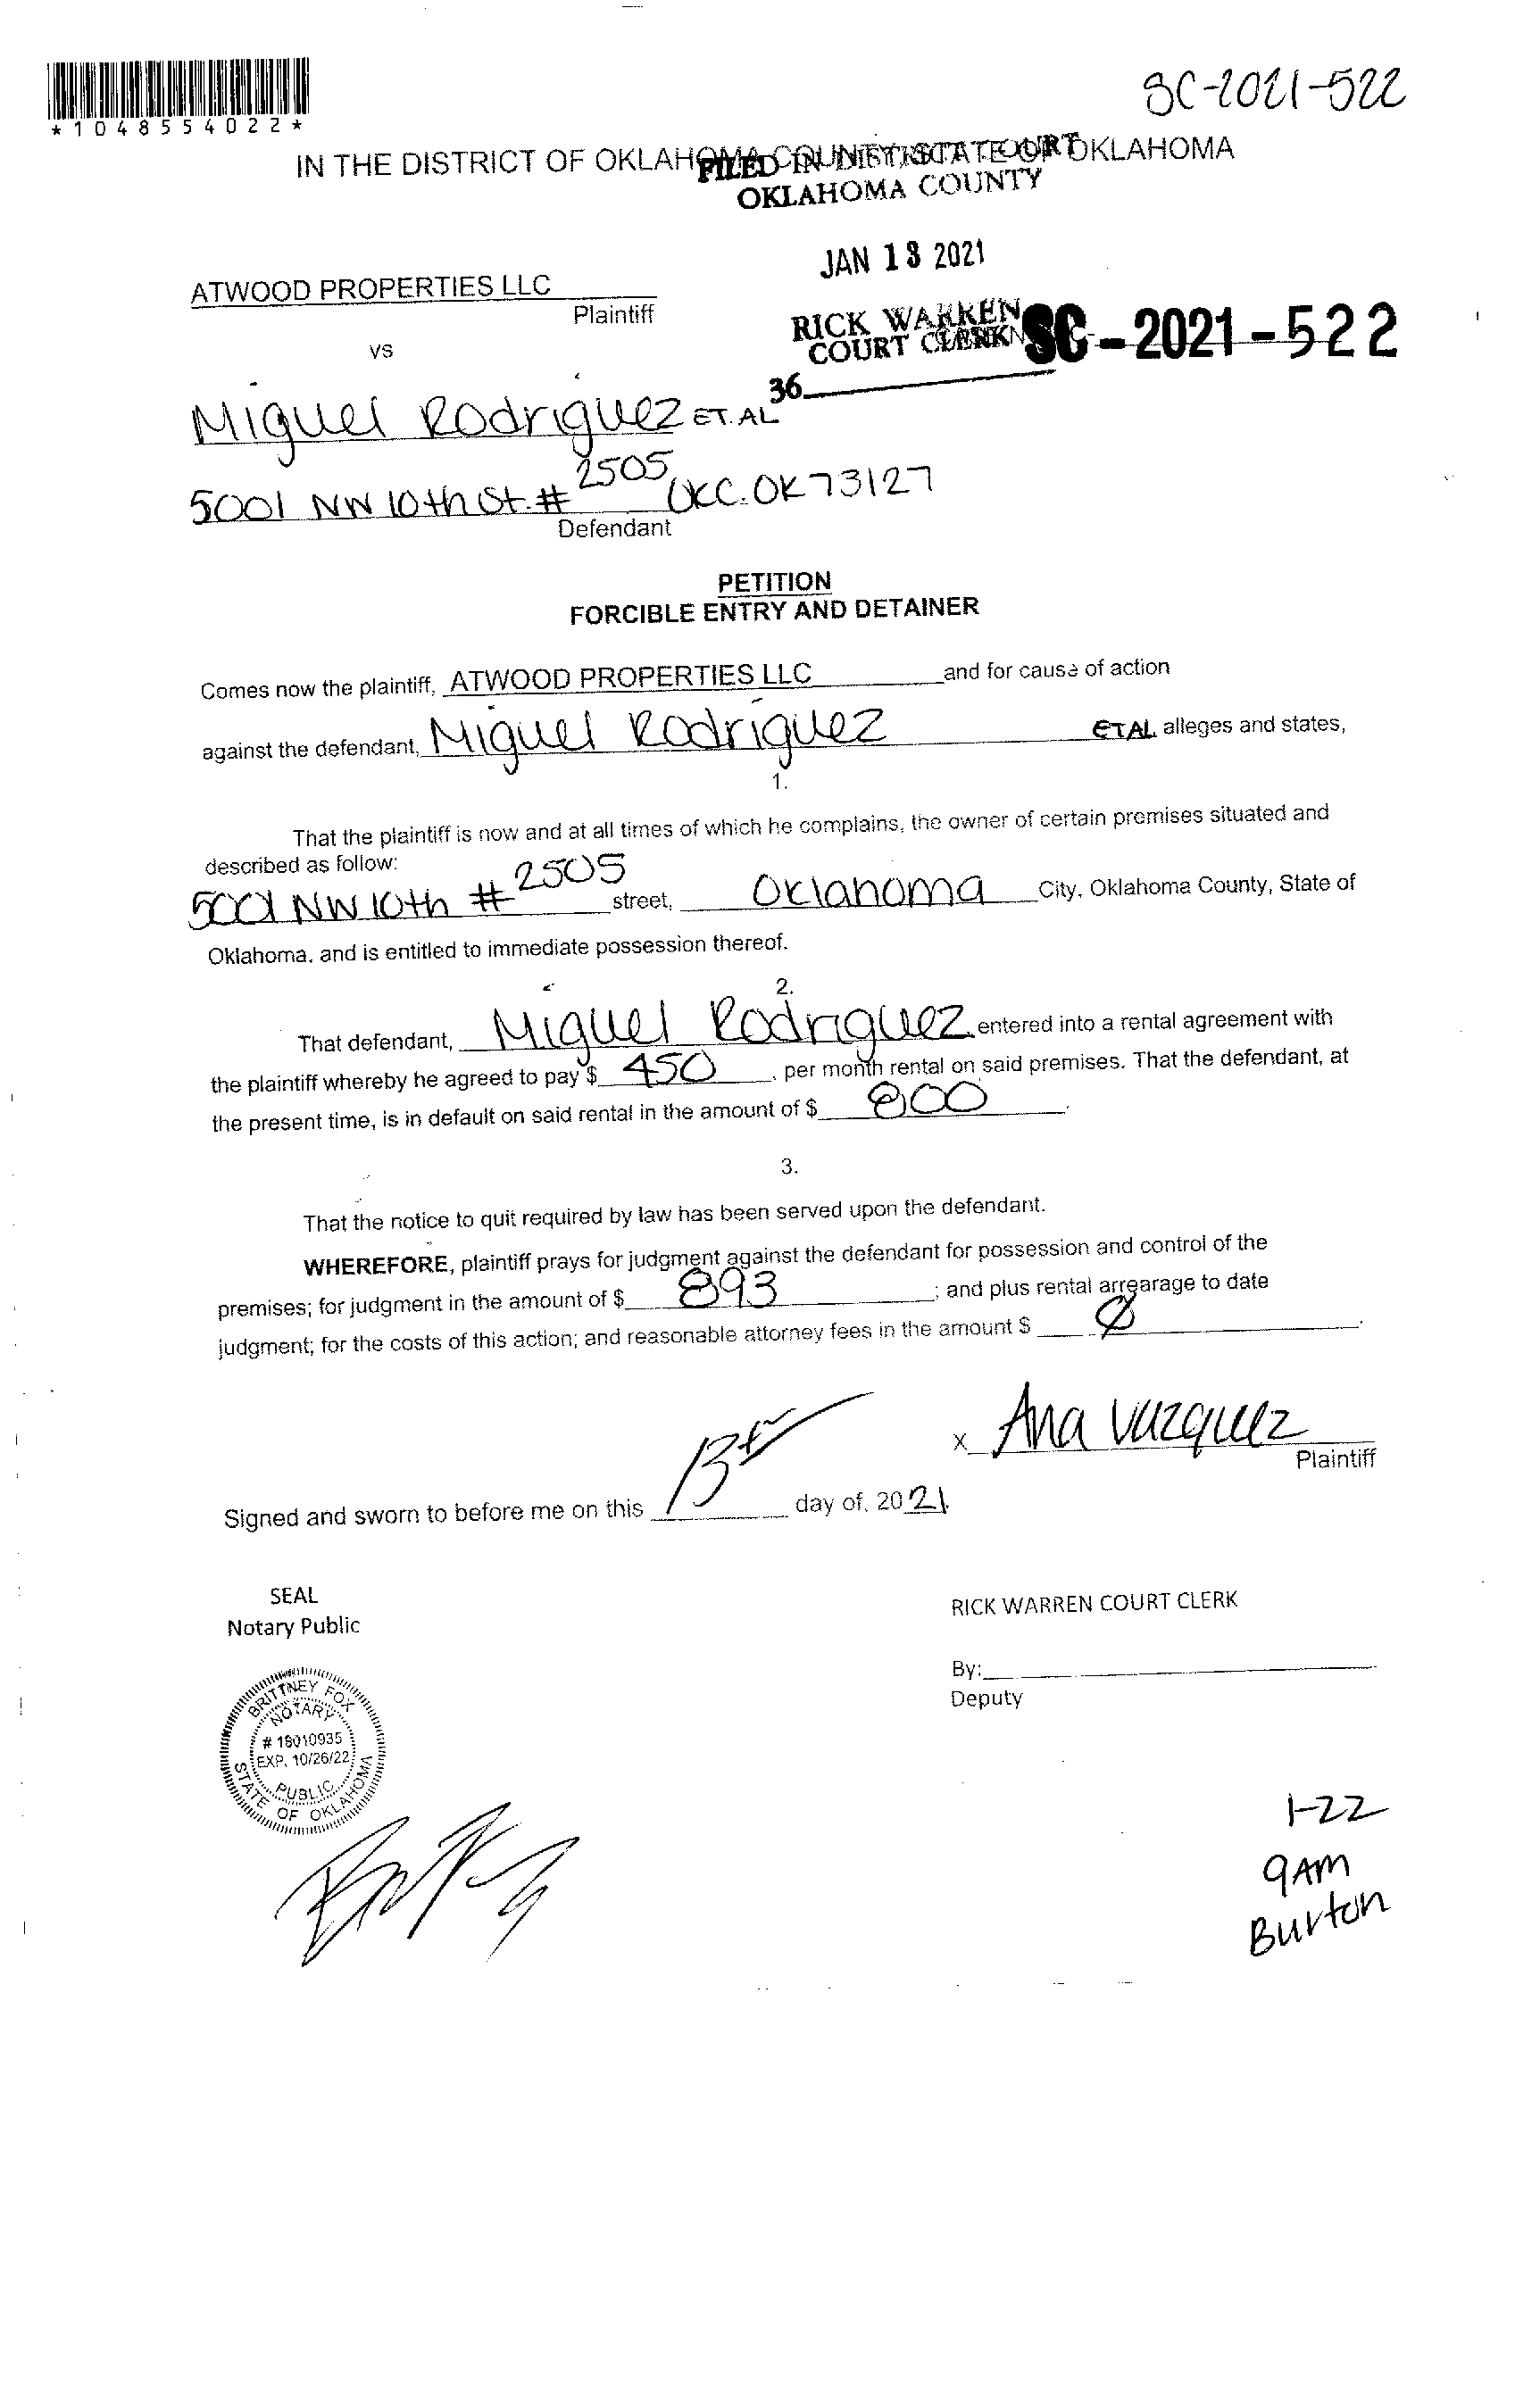 *1048554022*
SC-2021-522
IN THE DISTRICT OF OKLAHOMA COUNTY STATE OF OKLAHOMA
FILED IN DISTRICT COURT
OKLAHOMA COUNTY
JAN 13 2021
ATWOOD PROPERTIES LLC
Plaintiff
RICK WARREN
COURT CLERK
SC-2021-522
vs
36
Miguel Rodriguez ET. AL
5001 NW 10th St. # 2505 OKC. OK 73127
Defendant
PETITION
FORCIBLE ENTRY AND DETAINER
Comes now the plaintiff, ATWOOD PROPERTIES LLC and for cause of action
against the defendant, Miguel Rodriguez ETAL alleges and states,
1.
That the plaintiff is now and at all times of which he complains, the owner of certain premises situated and
described as follow:
5001 NW 10th # 2505 street, Oklahoma City, Oklahoma County, State of
Oklahoma, and is entitled to immediate possession thereof.
2.
That defendant, Miguel Rodriguez entered into a rental agreement with
the plaintiff whereby he agreed to pay $ 450, per month rental on said premises. That the defendant, at
the present time, is in default on said rental in the amount of $ 800.
3.
That the notice to quit required by law has been served upon the defendant.
WHEREFORE, plaintiff prays for judgment against the defendant for possession and control of the
premises; for judgment in the amount of $ 893; and plus rental arrearage to date
judgment; for the costs of this action; and reasonable attorney fees in the amount $ Ø.
x Ana Vazquez
Plaintiff
Signed and sworn to before me on this 13th day of, 2021.
SEAL
Notary Public
RICK WARREN COURT CLERK
By:
Deputy
BRITTNEY FOX
NOTARY
# 18010935
EXP. 10/26/22
PUBLIC
STATE OF OKLAHOMA
1-22
9AM
Burton